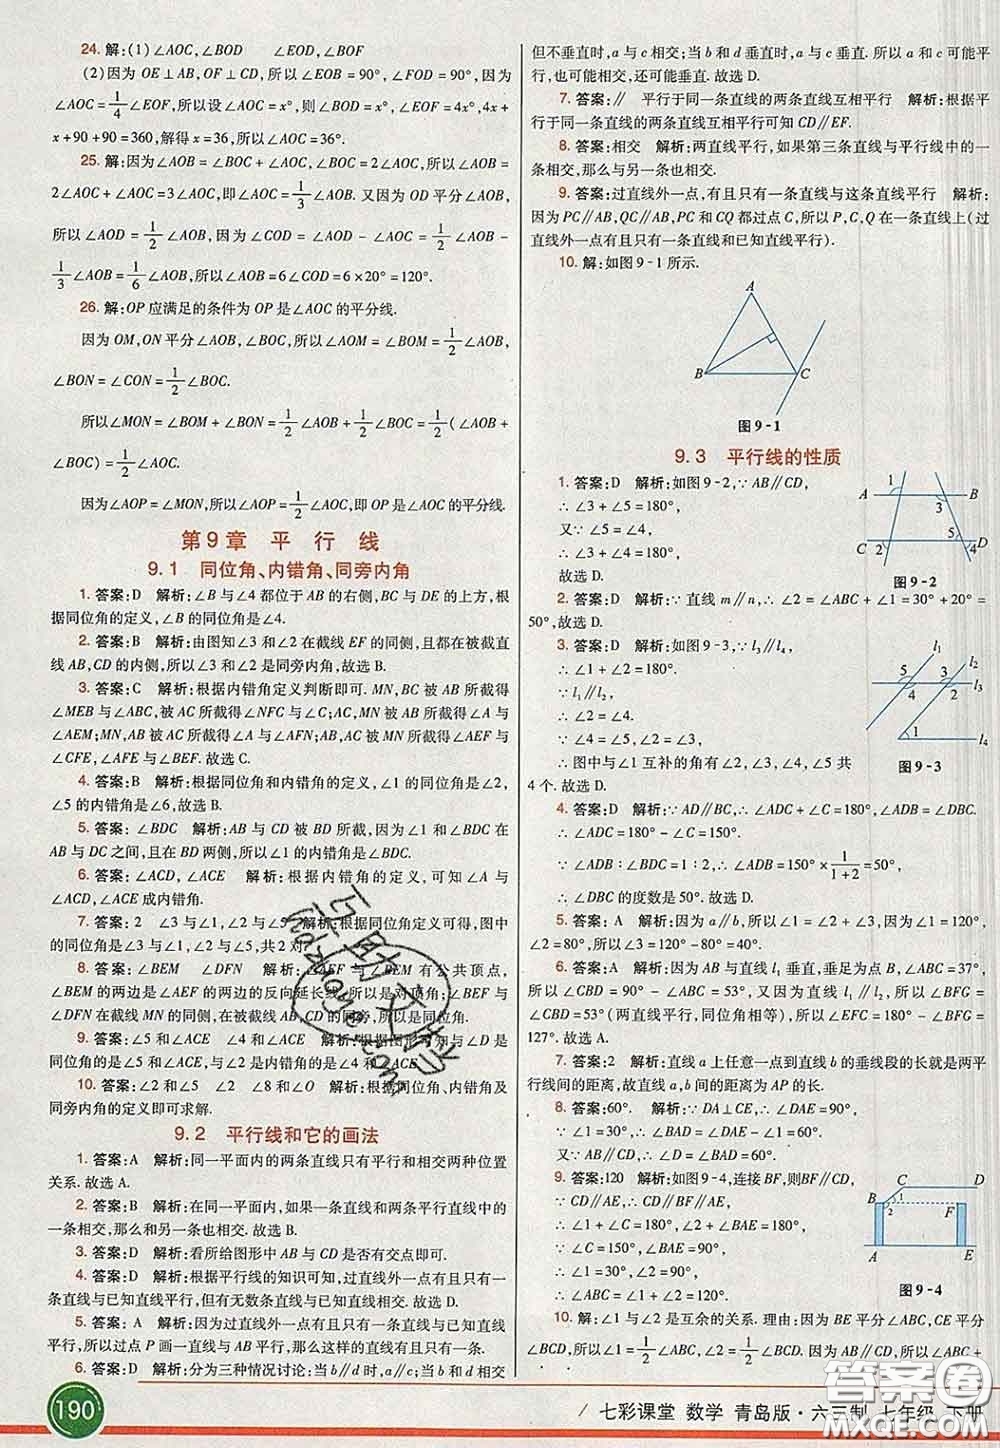 24. 解:(1)∠AOC,∠BOD ∠EOD,∠BOF
(2)因为 OE⊥AB,OF⊥CD,所以∠EOB=90°,∠FOD=90°,又因为
∠AOC=1/4∠EOF,所以设∠AOC=x°,则∠BOD=x°,∠EOF=4x°,4x+
x+90+90=360,解得 x=36,所以∠AOC=36°.
25. 解:因为∠AOB=∠BOC+∠AOC,∠BOC=2∠AOC,所以∠AOB=
2∠AOC+∠AOC=3∠AOC,即∠AOC=1/3∠AOB. 又因为 OD 平分∠AOB,
所以∠AOD=1/2∠AOB,所以∠COD=∠AOD-∠AOC=1/2∠AOB-
1/3∠AOB=1/6∠AOB,所以∠AOB=6∠COD=6×20°=120°.
26. 解:OP 应满足的条件为 OP 是∠AOC 的平分线.
因为 OM,ON 平分∠AOB,∠BOC,所以∠AOM=∠BOM=1/2∠AOB,
∠BON=∠CON=1/2∠BOC.
所以∠MON=∠BOM+∠BON=1/2∠AOB+1/2∠BOC=1/2(∠AOB+
∠BOC)=1/2∠AOC.
因为∠AOP=∠MON,所以∠AOP=1/2∠AOC,即 OP 是∠AOC 的平分线.
第9章 平 行 线
9.1 同位角、内错角、同旁内角
1. 答案:D 解析:∠B 与∠4 都位于 AB 的右侧,BC 与 DE 的上方,根
据同位角的定义,∠B 的同位角是∠4.
2. 答案:B 解析:由图知∠3 和∠2 在截线 EF 的同侧,且都在被截直
线 AB,CD 的内侧,所以∠3 和∠2 是同旁内角,故选 B.
3. 答案:C 解析:根据内错角定义判断即可. MN,BC 被 AB 所截得
∠MEB 与∠ABC,被 AC 所截得∠NFC 与∠C;AC,MN 被 AB 所截得∠A 与
∠AEM;MN,AB 被 AC 所截得∠A 与∠AFN;AB,AC 被 MN 所截得∠AEF 与
∠CFE,∠AFE 与∠BEF. 故选 C.
4. 答案:B 解析:根据同位角和内错角的定义,∠1 的同位角是∠2,
∠5 的内错角是∠6,故选 B.
5. 答案: ∠BDC 解析:AB 与 CD 被 BD 所截,因为∠1 和∠BDC 在
AB 与 DC 之间,且在 BD 两侧,所以∠1 的内错角是∠BDC.
6. 答案:∠ACD,∠ACE 解析:根据内错角的定义,可知∠A 与
∠ACD,∠ACE 成内错角.
7. 答案: 2 ∠3 与∠1,∠2 与∠5 解析:根据同位角定义可得,图中
的同位角为∠3 与∠1,∠2 与∠5,共2 对.
8. 答案:∠BEM ∠DFN 解析:因为∠AEF 与∠BEM 有公共顶点,
∠BEM 的两边是∠AEF 的两边的反向延长线,所以是对顶角;∠BEM 与
∠DFN 在截线 MN 的同侧,在被截线 AB,CD 的同旁,所以是同位角.
9. 答案:∠5 和∠ACE ∠4 和∠ACE 解析:根据图形可知与∠D 是
同位角的是∠5 和∠ACE,与∠D 是内错角的是∠4 和∠ACE.
10. 答案:∠2 和∠5 ∠2 ∠8 和∠DCE 解析:根据同位角、内错角及
同旁内角的定义即可求解.
9.2 平行线和它的画法
1. 答案:A 解析:同一平面内的两条直线只有平行和相交两种位置
关系. 故选 A.
2. 答案:B 解析:在同一平面内,如果一条直线和两条平行直线中的
一条相交,那么和另一条也相交. 故选 B.
3. 答案:D 解析:看所给图形中 AB 与 CD 是否有交点即可.
4. 答案:D 解析:根据平行线的知识可知,过直线外一点有且只有一
条直线与已知直线平行,但有无数条直线与已知直线相交. 故选 D.
5. 答案: A 解析:因为过直线外一点有且只有一条直线与已知直线
平行,所以过点 P 画一直线与 AB 平行,那么这样的直线有且只有一条.
6. 答案:D 解析:分为三种情况讨论:当 b∥d 时,a∥c;当 b 和 d 相交
但不垂直时,a 与 c 相交;当 b 和 d 垂直时,a 与 c 垂直. 所以 a 和 c 可能平
行,也可能相交,还可能垂直. 故选 D.
7. 答案:∥ 平行于同一条直线的两条直线互相平行 解析:根据平
行于同一条直线的两条直线互相平行可知 CD∥EF.
8. 答案:相交 解析:两直线平行,如果第三条直线与平行线中的一
条相交,那么与另一条也相交.
9. 答案:过直线外一点,有且只有一条直线与这条直线平行 解析:
因为 PC∥AB,QC∥AB,PC 和 CQ 都过点 C,所以 P,C,Q 在一条直线上(过
直线外一点有且只有一条直线和已知直线平行).
10. 解:如图 9-1 所示.
A
B
C
图 9-1
9.3 平行线的性质
1. 答案:D 解析:如图 9-2,∵AB∥CD,
∴∠3+∠5=180°,
又∵∠5=∠4,
∴∠3+∠4=180°,
故选 D.
1
A
B
3
C
2
5
4
D
图 9-2
2. 答案:D 解析:∵直线 m∥n,∴∠2=∠ABC+∠1=30°+20°=
50°,故选 D.
3. 答案:D 解析:如图 9-3,∵l3∥l4,
∴∠1+∠2=180°,
∵l1∥l2,
∴∠4=∠2,
∵∠4=∠5,∠2=∠3,
∴图中与∠1 互补的角有∠2,∠3,∠4,∠5 共
4 个. 故选 D.
l1
l2
5
3
4
2
l3
1
l4
图 9-3
4. 答案:D 解析:∵AD∥BC,∴∠ADC+∠C=180°,∠ADB=∠DBC.
∴∠ADC=180°-∠C=150°.
∵∠ADB:∠BDC=1:2,∴∠ADB=150°×1/(1+2)=50°,
∴∠DBC 的度数是50°. 故选 D.
5. 答案: A 解析:因为 a∥b,所以∠1=∠2+∠3,因为∠1=120°,
∠2=80°,所以∠3=120°-80°=40°.
6. 答案:D 解析:因为 AB 与直线 l1 垂直,垂足为点 B,∠ABC=37°,
所以∠CBD=90°-∠ABC=53°,又因为直线 l1∥l2,所以∠BFG=
∠CBD=53°(两直线平行,同位角相等),所以∠EFC=180°-∠BFG=
127°.
7. 答案:2 解析:直线 a 上任意一点到直线 b 的垂线段的长就是两平
行线间的距离,故直线 a,b 间的距离为 AP 的长.
8. 答案:60°. 解析:∵DA⊥CE,∴∠DAE=90°,∵∠1=30°,
∴∠BAD=60°,∵AB∥CD,∴∠D=∠BAD=60°.
9. 答案:120 解析:如图 9-4,连接 BF,则 BF∥CD,
∵CD∥AE,∴CD∥BF∥AE,
∴∠1+∠C=180°,∠2+∠A=180°,
∵∠A=90°,∴∠2=90°,
∵∠ABC=150°,∴∠1=60°,
∴∠C=120°.
C
D
B
1
2
F
A
E
图 9-4
10. 解:∠1 与∠2 是互余的关系. 理由:因为 BE 平分∠ABC,CF 平
分∠BCD,所以∠1=1/2∠ABC,∠2=1/2∠BCD,所以∠1+∠2=1/2∠ABC+
190
七彩课堂 数学 青岛版·六三制 七年级 下册
答案圈
MXQE.COM